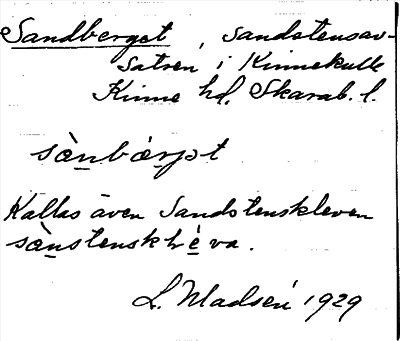 Sandberget, Sandstensav-
satsen i Kinnekulle
Kinne hd, Skarab. l.
sànbærjet
Kallas även Sandstenskleven
sànstensklèva.
L. Madsén 1929